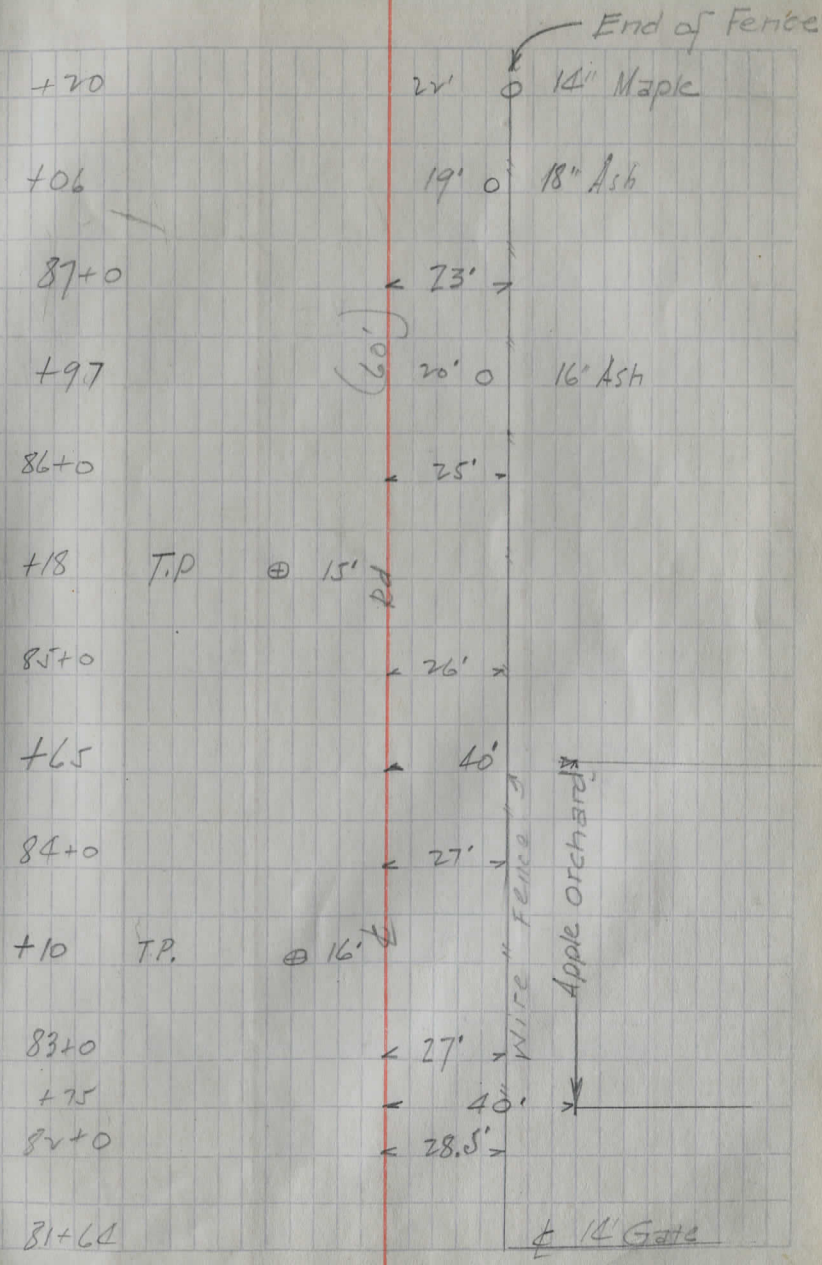 End of Fence
+20 22' 14" Maple
+06 19' 18" Ash
87+0 23'
(60')
+97 20' 16" Ash
86+0 25'
+18 T.P ⊕ 15'
Rd
85+0 26'
+65 40'
84+0 27'
Wire Fence
Apple Orchard
+10 T.P. ⊕ 16' ℄
83+0 27'
+75 40'
82+0 28.5'
81+64 ℄ 14' Gate